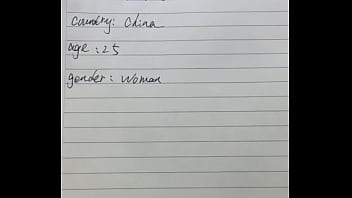 Country: China
age: 25
gender: Woman